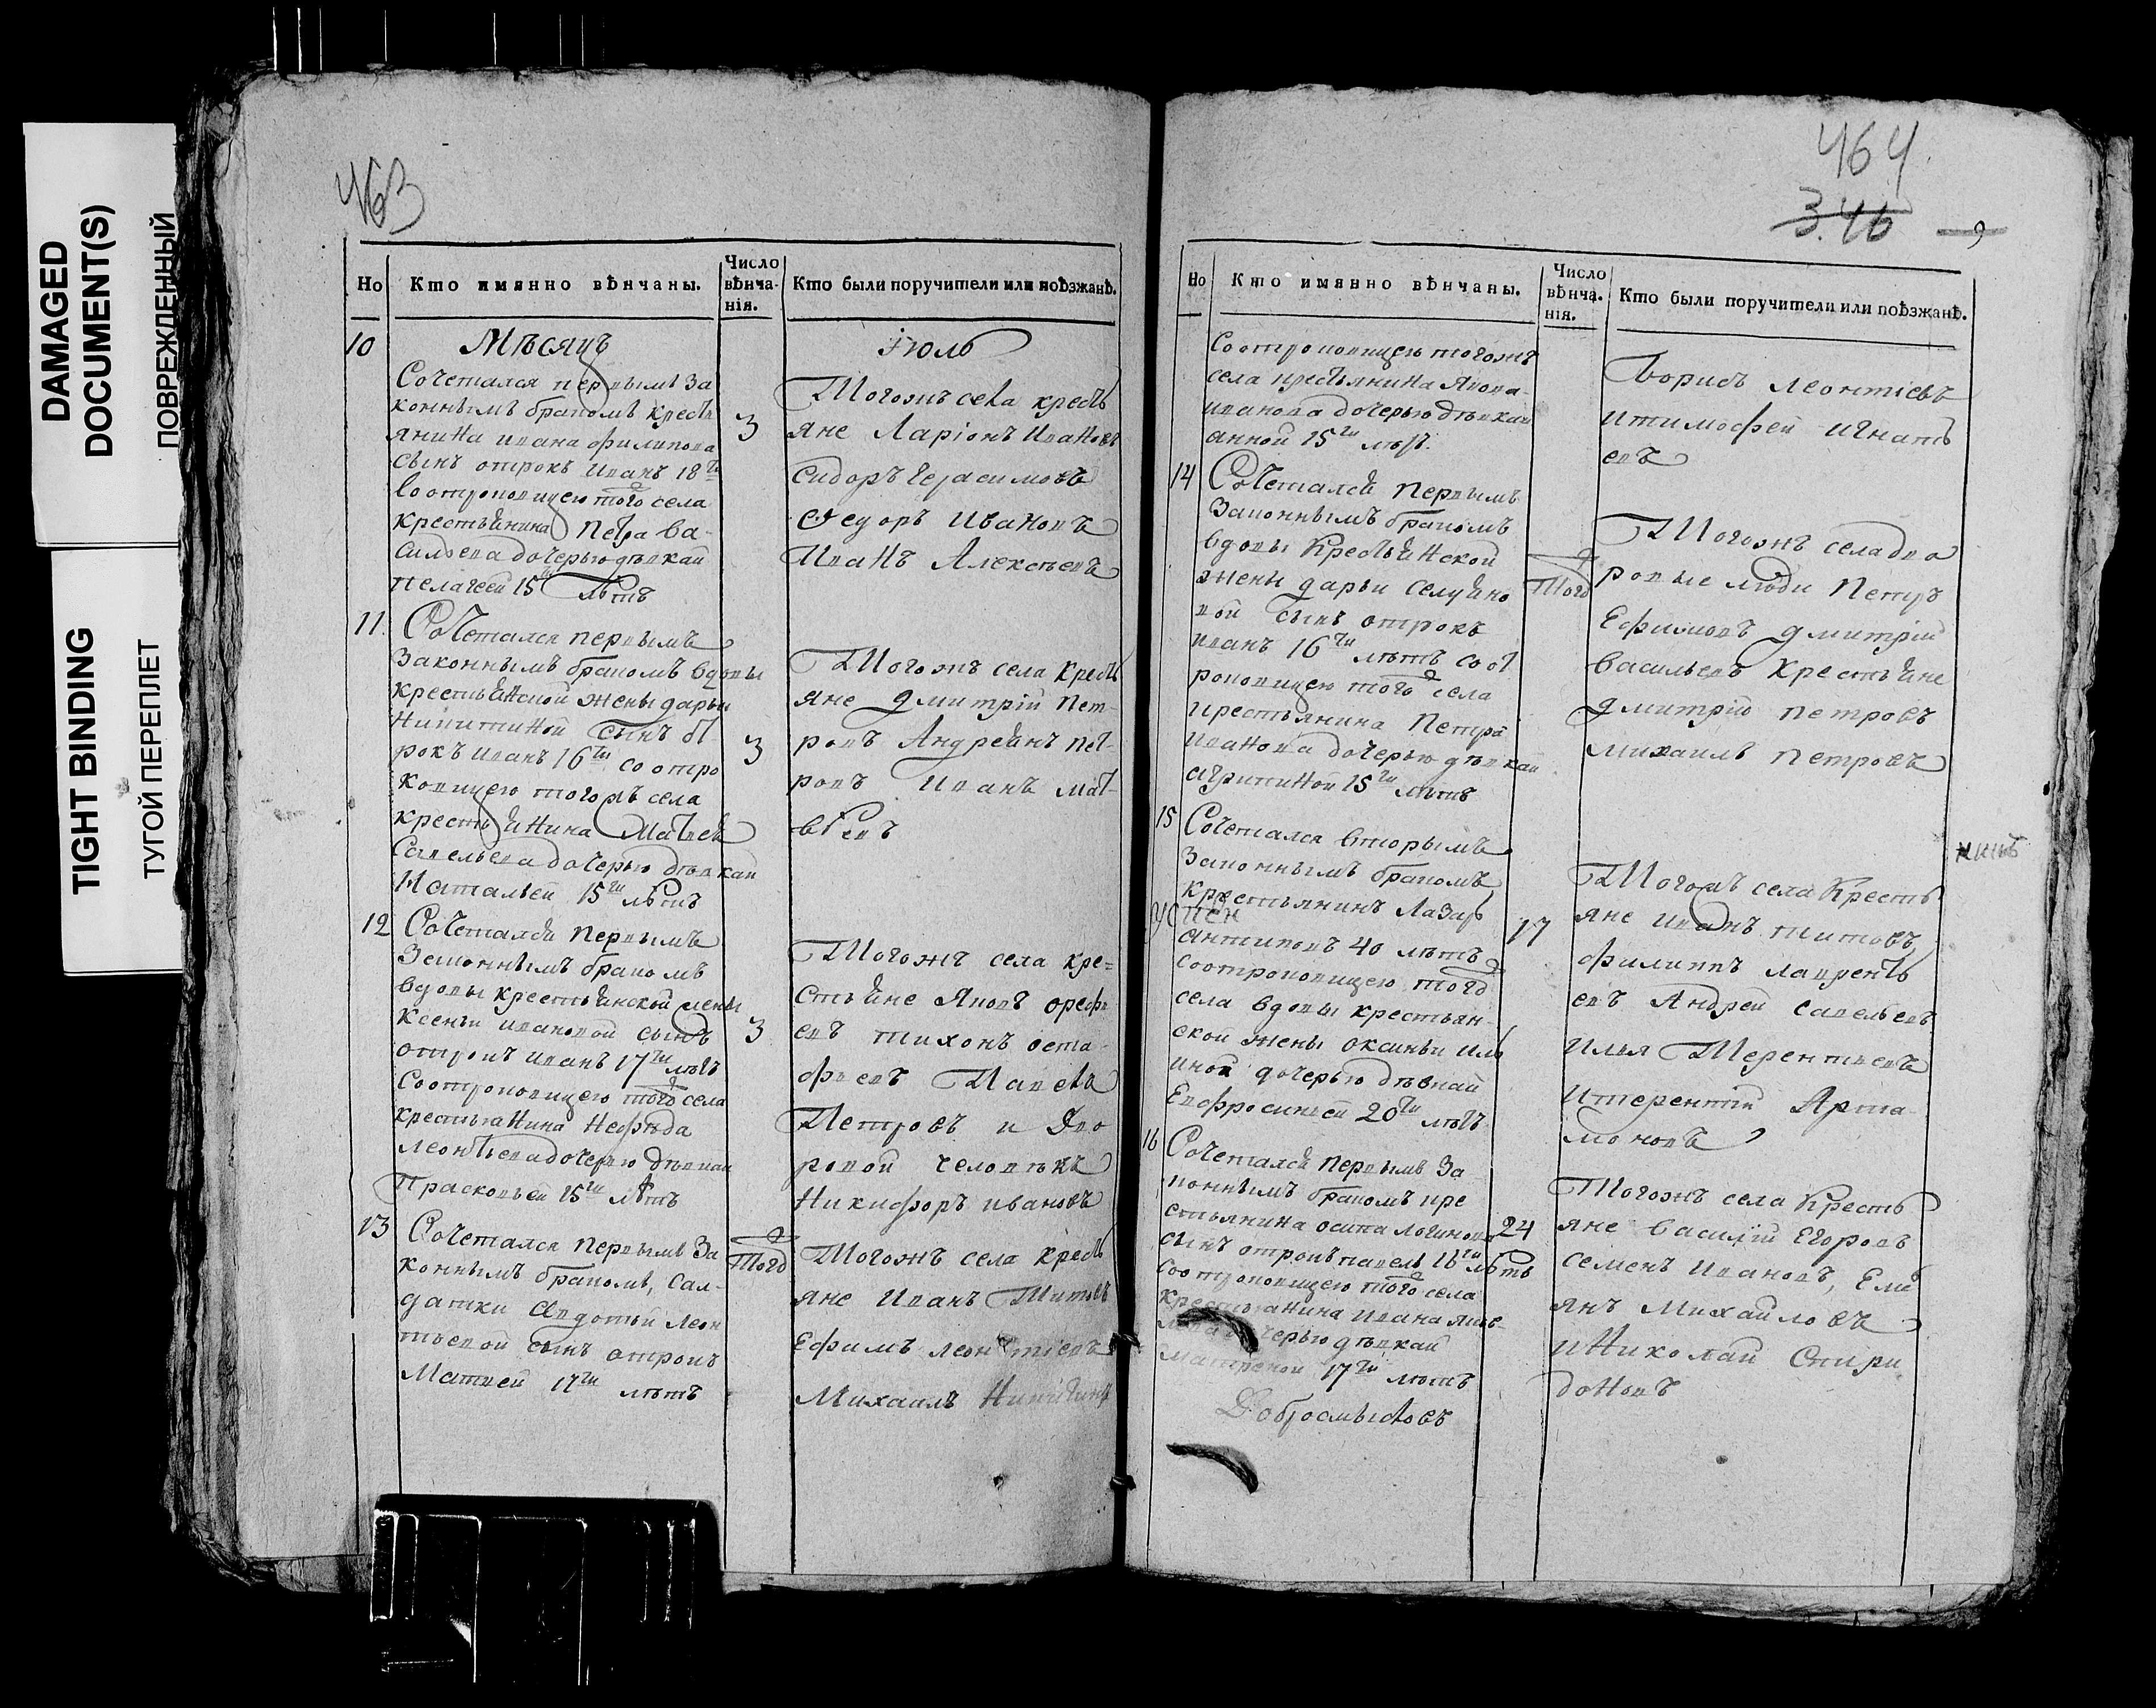 DAMAGED
DOCUMENT(S)
ПОВРЕЖДЕННЫЙ
TIGHT BINDING
ТУГОЙ ПЕРЕПЛЕТ
463
Но
Кто имянно вѣнчаны.
Число вѣнча-
нія.
Кто были поручители или поѣзжанѣ.
10
Мѣсяцъ
Іюль
Сочетался первымъ за
коннымъ бракомъ кресть
янина ивана филипова
сынъ отрокъ иванъ 18ти
со отроковицею того села
крестьянина Петра Ва-
сильева дочерью дѣвкай
пелагеей 15 лѣтъ
3
Тогожъ села кресть
яне Ларіонъ Ивановъ
Сидоръ Герасимовъ
Ѳедоръ Ивановъ
Иванъ Алексѣевъ
11.
Сочетался первымъ
Законнымъ бракомъ вдовы
крестьянской жены дарьи
Никитиной сынъ от
рокъ иванъ 16ти со отро
ковицею тогожъ села
крестьянина Матвея
Савельева дочерью дѣвкай
Натальей 15ти лѣтъ
3
Тогожъ села кресть
яне Дмитрій Пет-
ровъ Андреянъ пет-
ровъ Иванъ мат-
вѣевъ
12
Сочетался первымъ
Законнымъ бракомъ
вдовы крестьянской жены
Ксеньи ивановой сынъ
отрокъ иванъ 17ти лѣтъ
Соотроковицею того села
крестьянина Нефѣда
леонтьева дочерью дѣвкай
Прасковьей 15ти лѣтъ
3
Тогожъ села кре=
стьяне Яковъ ореф
евъ тихонъ оста-
фьевъ Павелъ
Петровъ и Дво
ровой человѣкъ
Никифоръ ивановъ
13
Сочетался первымъ За
коннымъ бракомъ, сал-
датки Авдотьи леон
тьевой сынъ отрокъ
Матвей 17ти лѣтъ
Того
Тогожъ села кресть
яне Иванъ Титовъ
Ефимъ леонтіевъ
Михаилъ Никитинъ
464
3.46
9
Но
Кто имянно вѣнчаны.
Число
вѣнча.
нія.
Кто были поручители или поѣзжанѣ.
Соотроковицею тогожъ
села крестьянина Якова
иванова дочерью дѣвкай
анной 15ти лѣтъ.
Борисъ леонтіевъ
итимофей игнать
евъ
14
Сочетался первымъ
Законнымъ бракомъ
вдовы Крестьянской
жены дарьи
сынъ отрокъ
иванъ 16ти лѣтъ соот
роковицею того села
крестьянина Петра
Иванова дочерью дѣвкай
агрипиной 15ти лѣтъ
Того
Тогожъ села дво
ровые люди Петръ
Ефимовъ дмитрій
васильевъ Крестьяне
дмитрій петровъ
михаилъ петровъ
15
Сочетался вторымъ
Законнымъ бракомъ
крестьянинъ Лазарь
антиповъ 40 лѣтъ
соотроковицею того
села вдовы крестьян-
ской жены оксиньи иль
иной дочерью дѣвкай
Ефросиньей 20ти лѣтъ
17
Тогожъ села Кресть
яне иванъ титовъ
филиппъ лаврентъ
евъ Андрей савельевъ
Илья Терентьевъ
Итерентій Арта-
моновъ
16
Сочетался первымъ За
коннымъ бракомъ кре
стьянина осипа логинова
сынъ отрокъ павелъ 16ти лѣтъ
соотроковицею того села
крестьянина Ивана
дочерью дѣвкай
матреной 17ти лѣтъ
24
Тогожъ села Кресть
яне василій Егоровъ
семенъ ивановъ, Емел
янъ Михайловъ
иНиколай Спири
доновъ
Добросмысловъ